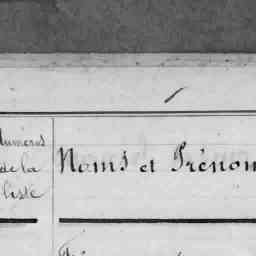 Numéros
de la
liste
Noms et Prénom